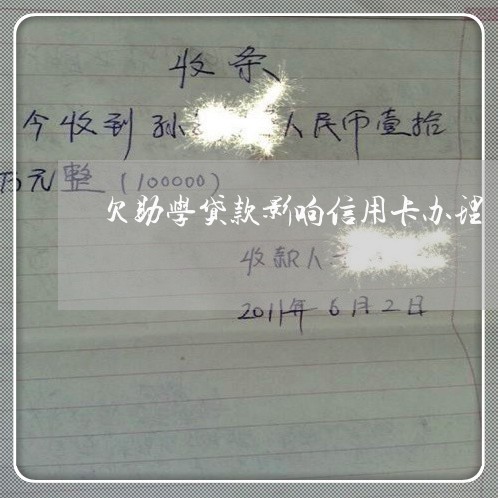 收条
今收到孙 人民币壹拾
万元整(100000)
欠助学贷款影响信用卡办理
收款人
2011年6月2日